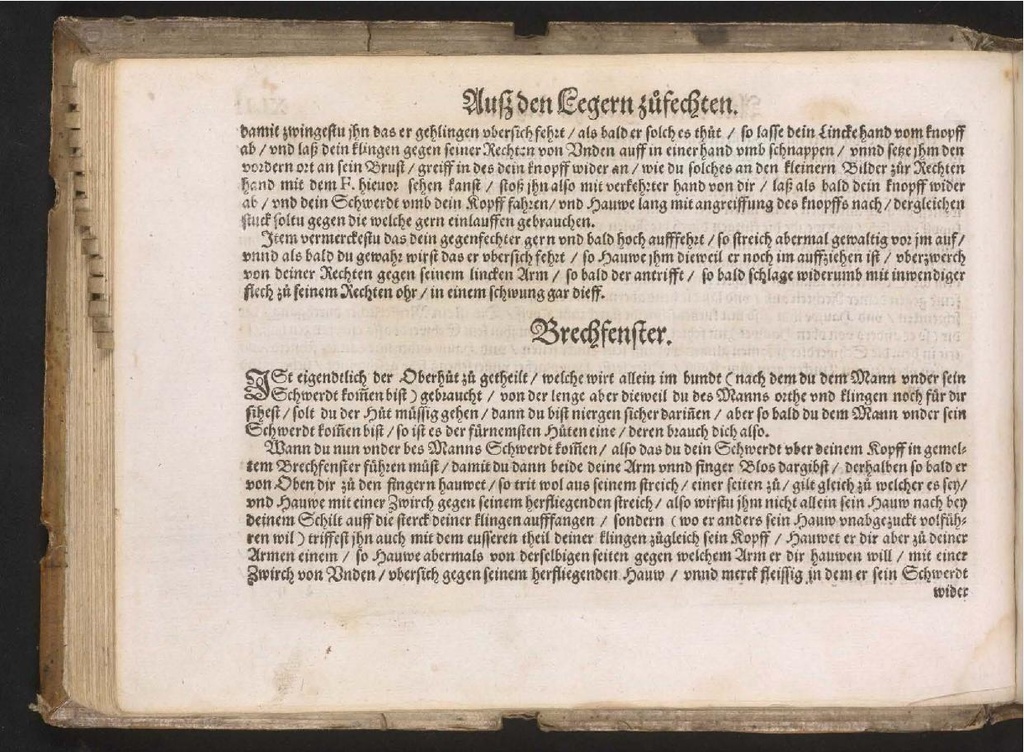 Außz den Legern zůfechten.
damit zwingestu jhn das er gehlingen vbersich fehrt / als bald er solches thůt / so lasse dein Lincke hand vom knopff
ab / vnd laß dein klingen gegen seiner Rechten von Vnden auff in einer hand vmb schnappen / vnnd setze jhm den
vordern ort an sein Brust / greiff in des dein knopff wider an / wie du solches an den kleinern Bilder zůr Rechten
hand mit dem F. hieuor sehen kanst / stoß jhn also mit verkehrter hand von dir / laß als bald dein knopff wider
ab / vnd dein Schwerdt vmb dein Kopff fahren / vnd Hauwe lang mit angreiffung des knopffs nach / dergleichen
stuck soltu gegen die welche gern einlauffen gebrauchen.
Item vermerckestu das dein gegenfechter gern vnd bald hoch aufffehrt / so streich abermal gewaltig vor jm auf /
vnnd als bald du gewahr wirst das er vbersich fehrt / so Hauwe jhm dieweil er noch im auffziehen ist / vberzwerch
von deiner Rechten gegen seinem lincken Arm / so bald der antrifft / so bald schlage widerumb mit inwendiger
flech zů seinem Rechten ohr / in einem schwung gar dieff.
Brechfenster.
ISt eigendtlich der Oberhůt zů getheilt / welche wirt allein im bundt ( nach dem du dem Mann vnder sein
Schwerdt kom̃en bist ) gebraucht / von der lenge aber dieweil du des Manns orthe vnd klingen noch für dir
sihest / solt du der Hůt müssig gehen / dann du bist niergen sicher darin̄en / aber so bald du dem Mann vnder sein
Schwerdt kom̃en bist / so ist es der fürnemsten Hůten eine / deren brauch dich also.
Wann du nun vnder des Manns Schwerdt kom̃en / also das du dein Schwerdt vber deinem Kopff in gemel-
tem Brechfenster führen můst / damit du dann beide deine Arm vnnd finger Blos dargibst / derhalben so bald er
von Oben dir zů den fingern hauwet / so trit wol aus seinem streich / einer seiten zů / gilt gleich zů welcher es sey /
vnd Hauwe mit einer Zwirch gegen seinem herfliegenden streich / also wirstu jhm nicht allein sein Hauw nach bey
deinem Schilt auff die sterck deiner klingen aufffangen / sondern ( wo er anders sein Hauw vnabgezuckt volfüh-
ren wil ) triffest jhn auch mit dem eusseren theil deiner klingen zůgleich sein Kopff / Hauwet er dir aber zů deiner
Armen einem / so Hauwe abermals von derselbigen seiten gegen welchem Arm er dir hauwen will / mit einer
Zwirch von Vnden / vbersich gegen seinem herfliegenden Hauw / vnnd merck fleissig in dem er sein Schwerdt
wider